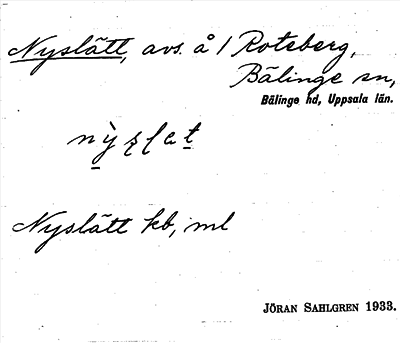 Nyslätt, avs. å 1 Roteberg,
Bälinge sn,
Bälinge hd, Uppsala län.
Nyslätt kb, ml
JÖRAN SAHLGREN 1933.